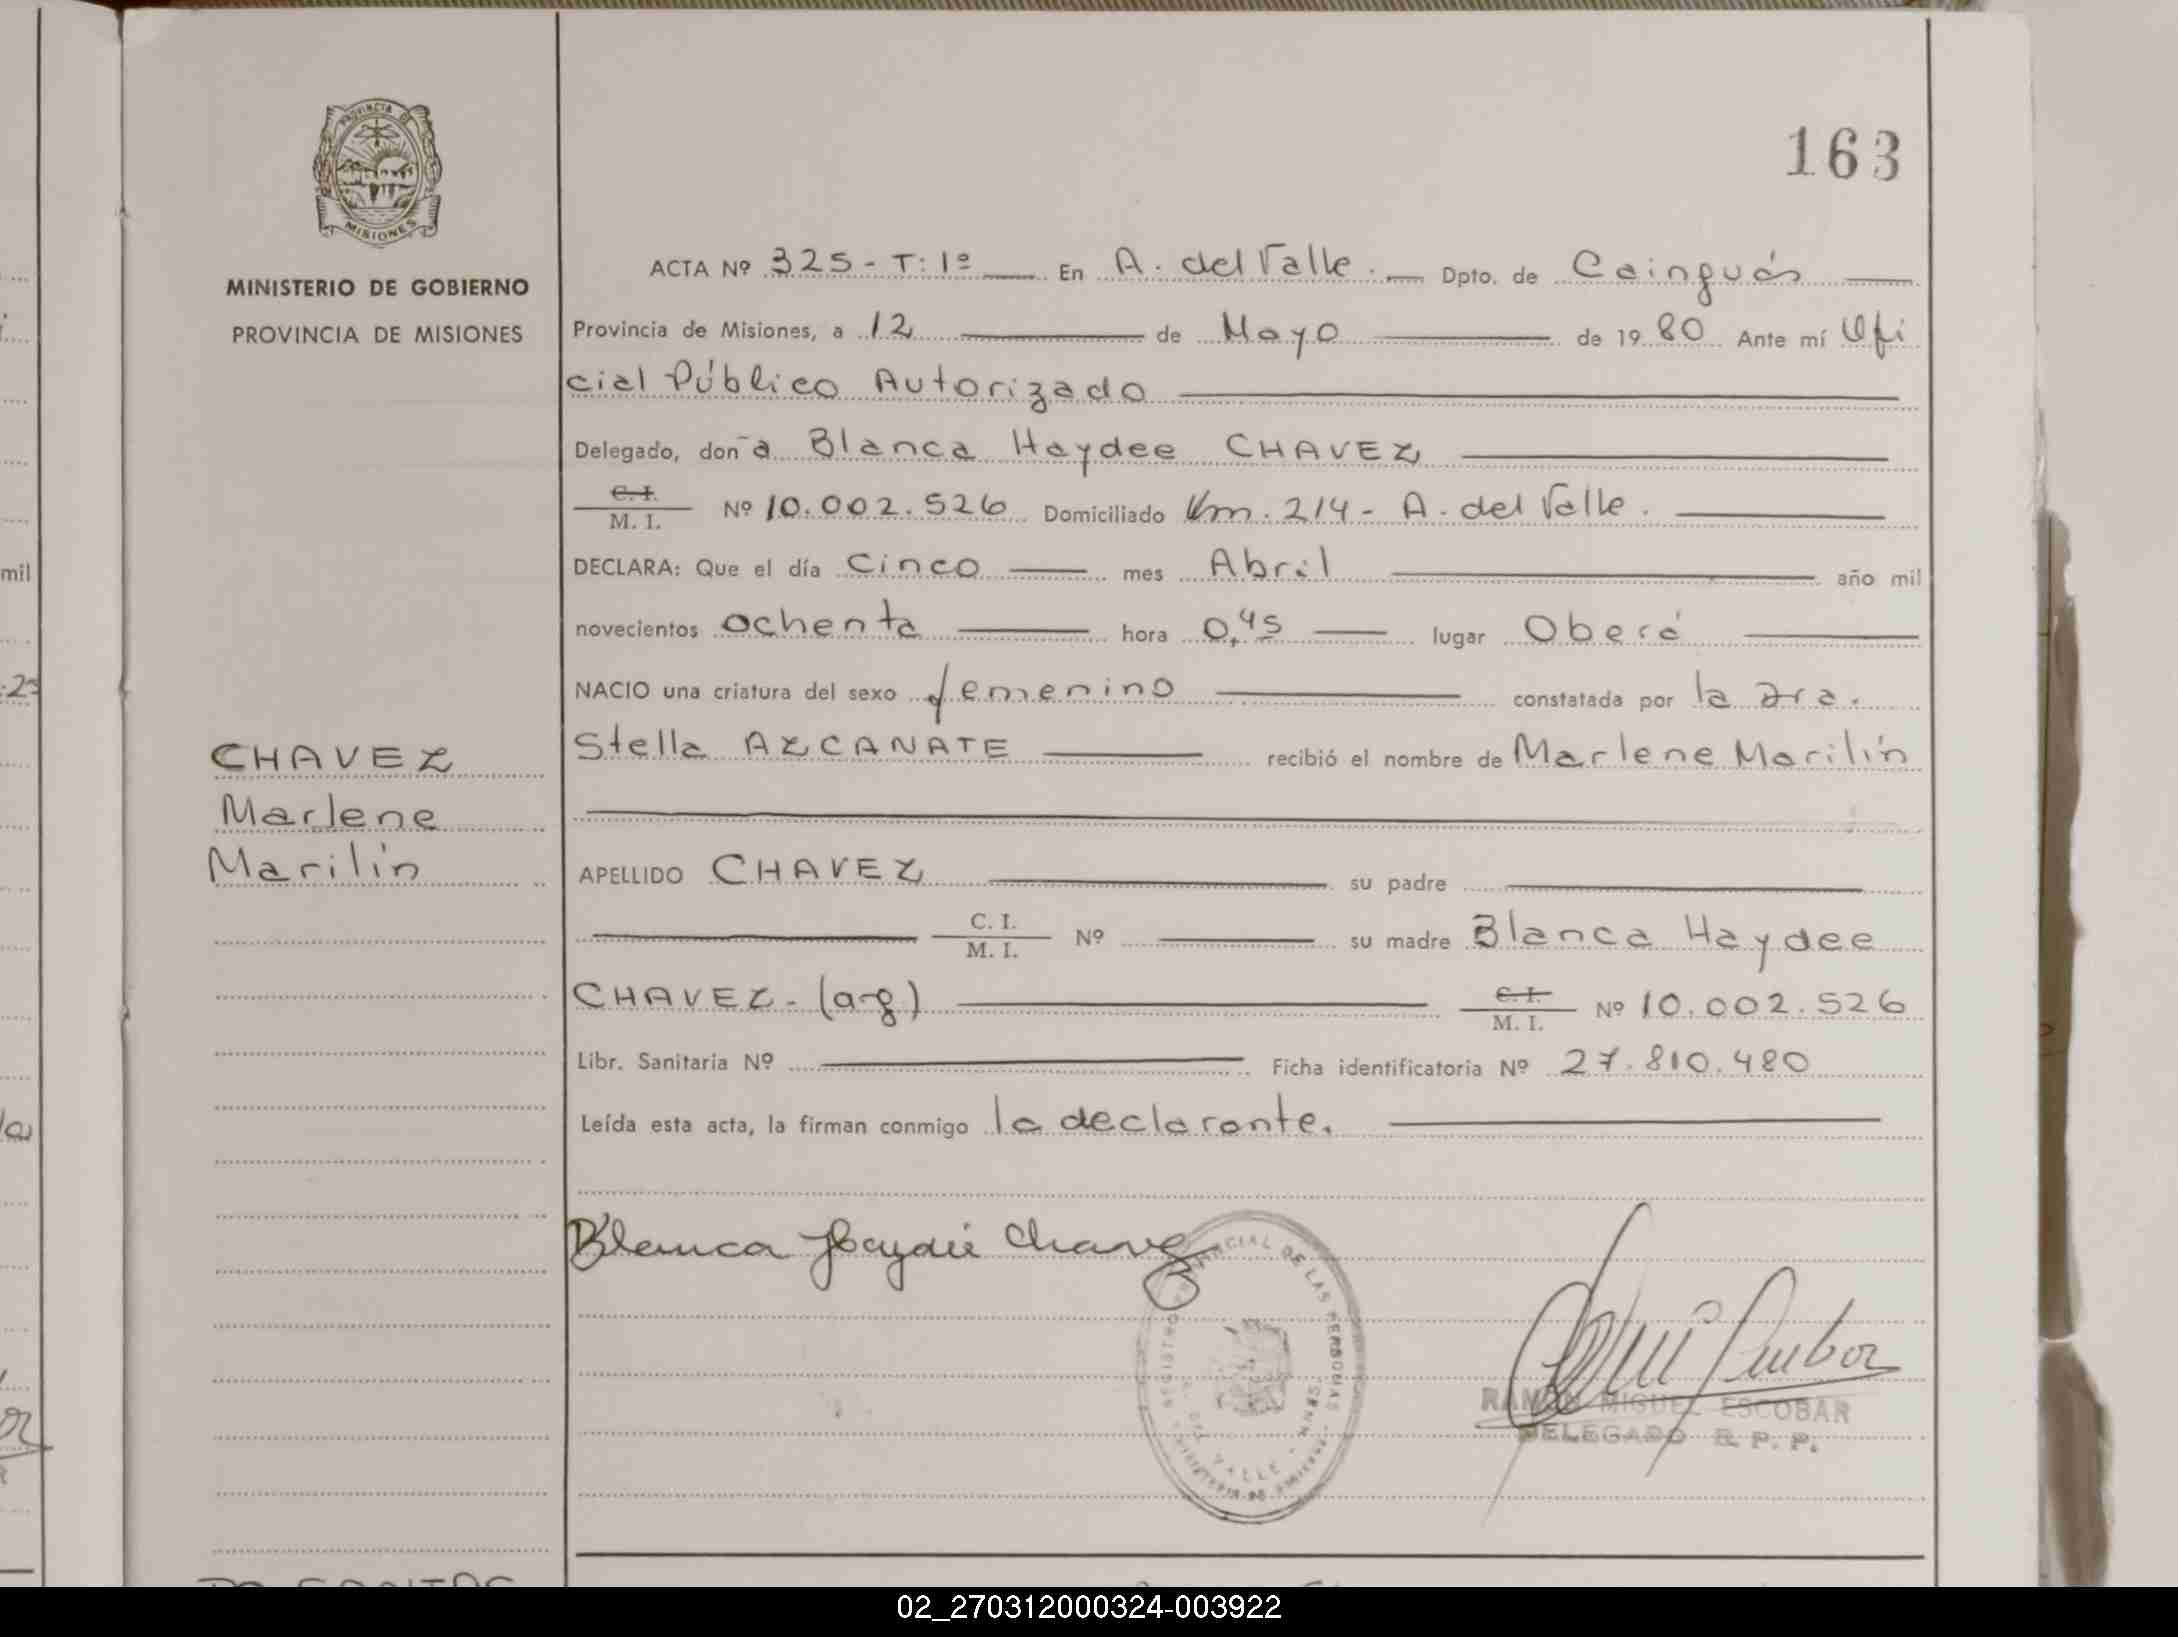 163
PROVINCIA DE
MISIONES
MINISTERIO DE GOBIERNO
PROVINCIA DE MISIONES
ACTA Nº 325 - T: 1º En A. del Valle. Dpto. de Cainguás
Provincia de Misiones, a 12 de Mayo de 1980 Ante mí Ofi
cial Público Autorizado
Delegado, don~a Blanca Haydee CHAVEZ
C. I. / M. I. Nº 10.002.526 Domiciliado Km. 214 - A. del Valle.
DECLARA: Que el día Cinco mes Abril año mil
novecientos ochenta hora 0,45 lugar Oberá
NACIO una criatura del sexo femenino constatada por la Dra.
Stella AZCANATE recibió el nombre de Marlene Marilín
CHAVEZ
Marlene
Marilín
APELLIDO CHAVEZ su padre
C. I. / M. I. Nº su madre Blanca Haydee
CHAVEZ - (arg) C. I. / M. I. Nº 10.002.526
Libr. Sanitaria Nº Ficha identificatoria Nº 27.810.480
Leída esta acta, la firman conmigo la declarante.
Blanca Haydée Chavez
REGISTRO PROVINCIAL DE LAS PERSONAS
DEL VALLE - MNES.
RAMON MIGUEL ESCOBAR
DELEGADO R. P. P.
mil
02_270312000324-003922